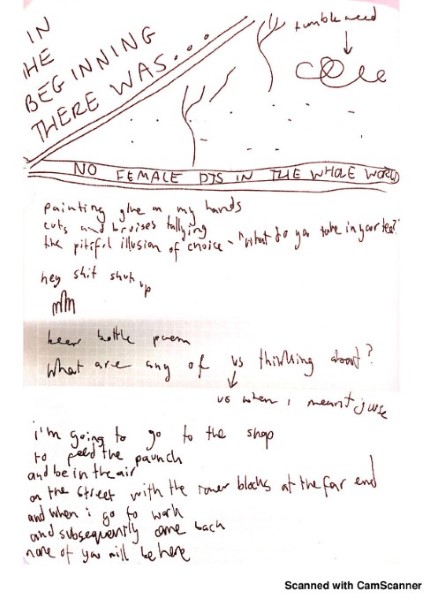 IN
THE
BEGINNING
THERE WAS...
tumbleweed
NO FEMALE DJS IN THE WHOLE WORLD
painting glue on my hands
cuts and bruises tallying
the pitiful illusion of choice - "what do you take in your tea?"
hey shit shut up
beer bottle poem
what are any of us thinking about?
us when i meant
i'm going to go to the shop
to feed the paunch
and be in the air
on the street with the tower blocks at the far end
and when i go to work
and subsequently come back
none of you will be here
Scanned with CamScanner